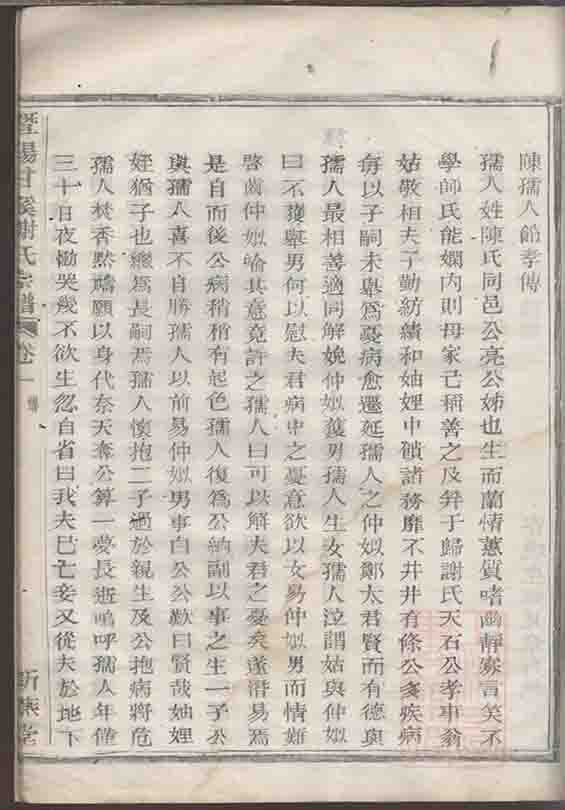 陳孺人節孝傳
孺人姓陳氏同邑公亮公姊也生而蘭情蕙質嗜幽靜寡言笑不
學師氏能嫻內則母家已稱善之及笄于歸謝氏天石公孝事翁
姑敬相夫子勤紡績和妯娌中饋諸務靡不井井有條公多疾病
每以子嗣未舉爲憂病愈遷延孺人之仲姒鄭太君賢而有德與
孺人最相善適同解娩仲姒獲男孺人生女孺人泣謂姑與仲姒
曰不獲舉男何以慰夫君病中之憂意欲以女易仲姒男而情難
啓齒仲姒喻其意竟許之孺人曰可以解夫君之憂矣遂潛易焉
是自而後公病稍稍有起色孺人復爲公納副以事之生一子公
與孺人喜不自勝孺人以前易仲姒男事白公公歎曰賢哉妯娌
姪猶子也繼爲長嗣焉孺人懷抱二子過於親生及公抱病將危
孺人焚香默禱願以身代奈天奪公算一夢長逝嗚呼孺人年僅
三十日夜慟哭幾不欲生忽自省曰我夫已亡妾又從夫於地下
暨陽甘溪謝氏宗譜 卷一 傳